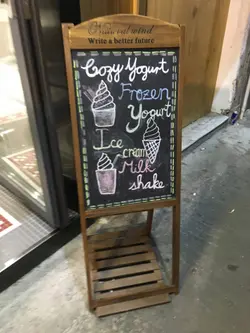 Natural wind
Write a better future
Cozy Yogurt
Frozen
Yogurt
Ice
cream
Milk
shake